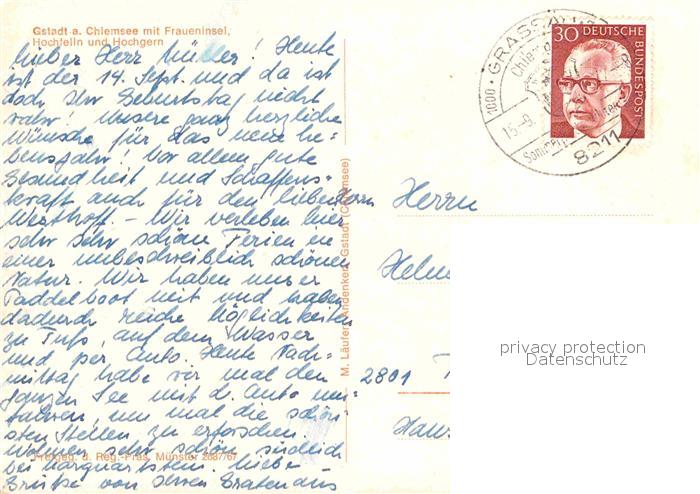 Gstadt a. Chiemsee mit Fraueninsel,
Hochfelln und Hochgern
lieber Herr Müller! Heute
ist der 14. Sept. und da ist
doch Ihr Geburtstag nicht
wahr! Unsere ganz herzliche
Wünsche für das neue Le-
bensjahr! Vor allem gute
Gesundheit und Schaffens-
kraft auch für den lieben Herrn
Westhoff. - Wir verleben hier
sehr sehr schöne Ferien in
einer unbeschreiblich schönen
Natur. Wir haben unser
Paddelboot mit und haben
dadurch reiche Möglichkeiten
zu Fuß, auf dem Wasser
und per Auto. Heute Nach-
mittag habe wir mal den
ganzen See mit d. Auto um-
fahren, um mal die schön-
sten Stellen zu erforschen.
Wohnen sehr schön südlich
bei Marquartstein. Liebe
Grüße von Ihren
Freigeg. d. Reg.-Präs. Münster 2687/67
M. Läufer, Andenken, Gstadt (Chiemsee)
1000
GRASSAU
15.-9.
8211
30 DEUTSCHE
BUNDESPOST
Herrn
Helm
2801
Haus
privacy protection
Datenschutz